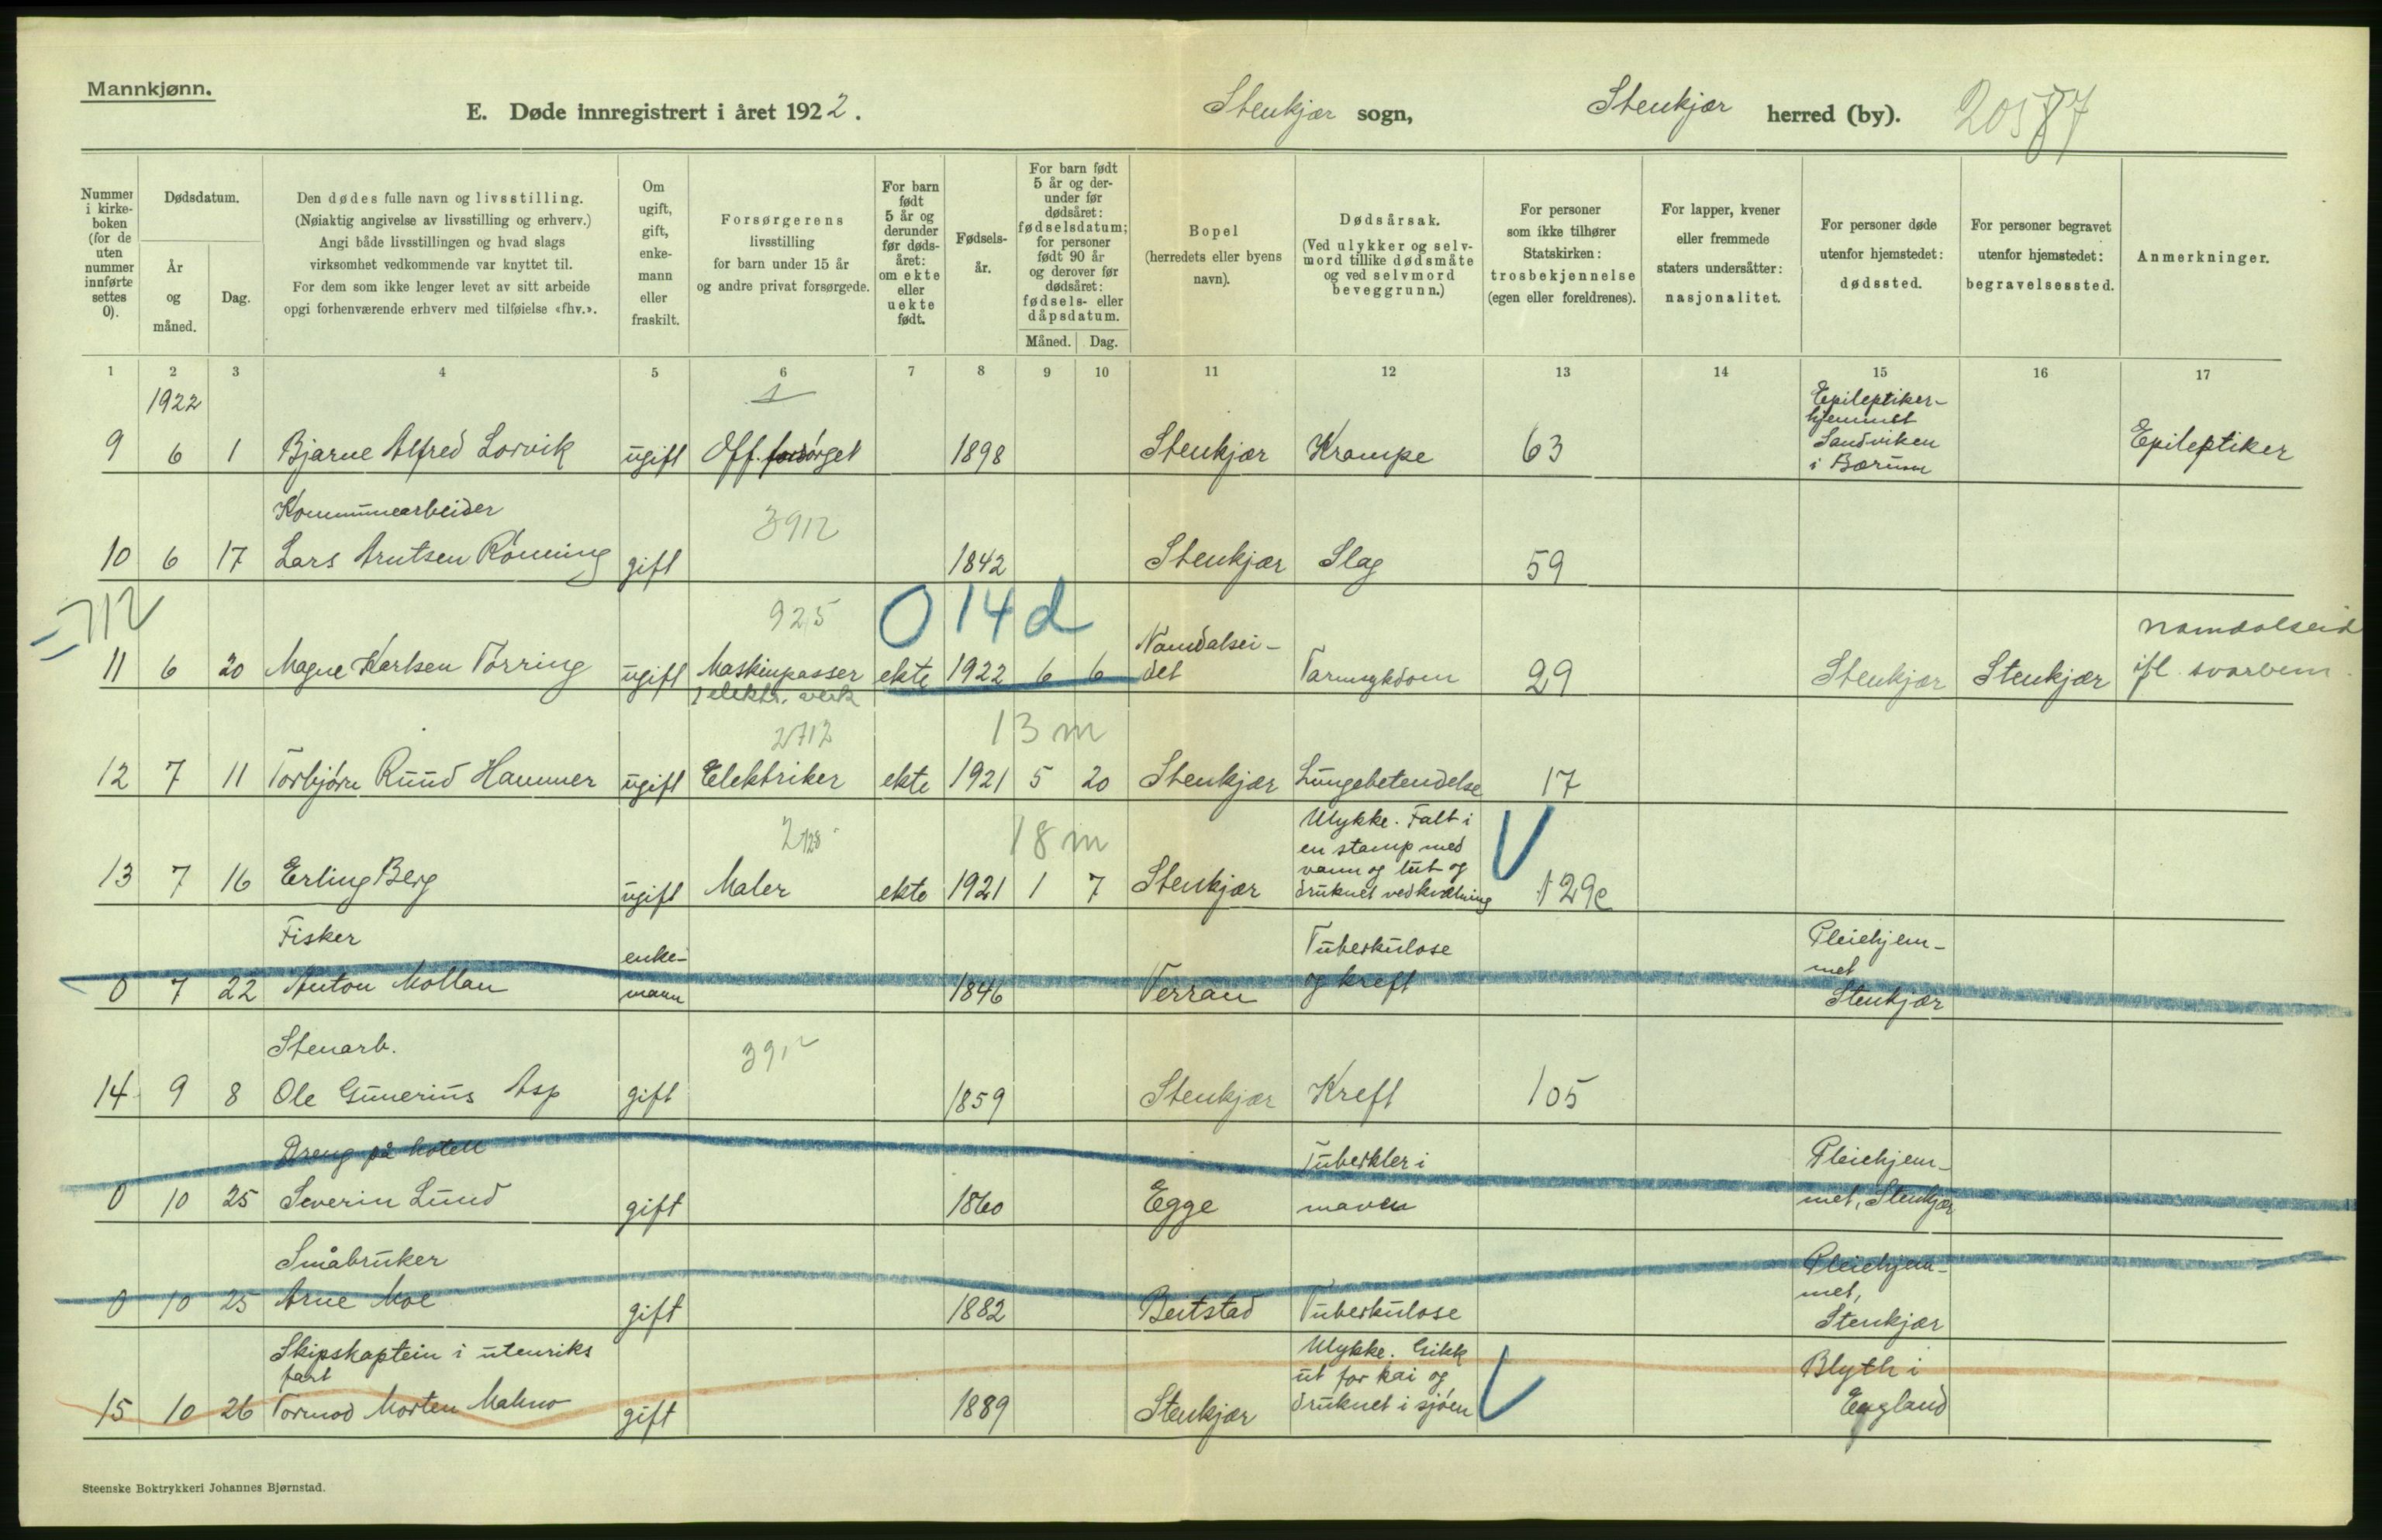 Mannkjønn.
E. Døde innregistrert i året 1922.
Stenkjær sogn,
Stenkjær herred (by).
Nummer i kirke-boken (for de uten nummer innførte settes 0).
Dødsdatum.
År og måned.
Dag.
Den dødes fulle navn og livsstilling.
(Nøiaktig angivelse av livsstilling og erhverv.)
Angi både livsstillingen og hvad slags
virksomhet vedkommende var knyttet til.
For dem som ikke lenger levet av sitt arbeide
opgi forhenværende erhverv med tilføielse «fhv.».
Om ugift, gift, enke-mann eller fraskilt.
Forsørgerens
livsstilling
for barn under 15 år
og andre privat forsørgede.
For barn født 5 år og derunder før døds-året: om ekte eller uekte født.
Fødsels-år.
For barn født 5 år og der-under før dødsåret: fødselsdatum; for personer født 90 år og derover før dødsåret: fødsels- eller dåpsdatum.
Måned. Dag.
Bopel
(herredets eller byens
navn).
Dødsårsak.
(Ved ulykker og selv-
mord tillike dødsmåte
og ved selvmord
beveggrunn.)
For personer
som ikke tilhører
Statskirken:
trosbekjennelse
(egen eller foreldrenes).
For lapper, kvener
eller fremmede
staters undersåtter:
nasjonalitet.
For personer døde
utenfor hjemstedet:
dødssted.
For personer begravet
utenfor hjemstedet:
begravelsessted.
Anmerkninger.
1 2 3 4 5 6 7 8 9 10 11 12 13 14 15 16 17
1922
1
Epileptiker-
hjemmet
Sandviken
i Bærum
9 6 1 Bjarne Alfred Lorvik ugift Off. forsørget 1898 Stenkjær Krampe 63 Epileptiker
Kommunearbeider
3912
10 6 17 Lars Arntsen Rønning gift 1842 Stenkjær Slag 59
=712
925
0 14 d
Namdalsei-
namdalseid
11 6 20 Magne Karlsen Tørring ugift Maskinpasser ekte 1922 6 6 det Tarmsykdom 29 Stenkjær Stenkjær ifl. svarbem.
elektr. verk
2712
13 m
12 7 11 Torbjørn Ruud Hammer ugift Elektriker ekte 1921 5 20 Stenkjær Lungebetendelse 17
18 m
Ulykke. Falt i
en stamp med
vann og lut og
druknet ved kvælning
13 7 16 Erling Berg ugift Maler ekte 1921 1 7 Stenkjær
Fisker
enke-
Tuberkulose
Pleiehjem-
met
0 7 22 Anton Mollan mann 1846 Verran og kreft Stenkjær
Stenarb.
3912
14 9 8 Ole Gunerius Asp gift 1859 Stenkjær Kreft 105
Dreng på hotell
Tuberkler i
Pleiehjem-
0 10 25 Severin Lund gift 1860 Egge maven met, Stenkjær
Småbruker
Pleiehjem-
met,
0 10 25 Arne Moe gift 1882 Beitstad Tuberkulose Stenkjær
Skipskaptein i utenriks
fart
Ulykke. Gikk
ut for kai og
druknet i sjøen
Blyth i
England
15 10 26 Tormod Morten Malmo gift 1889 Stenkjær
Steenske Boktrykkeri Johannes Bjørnstad.